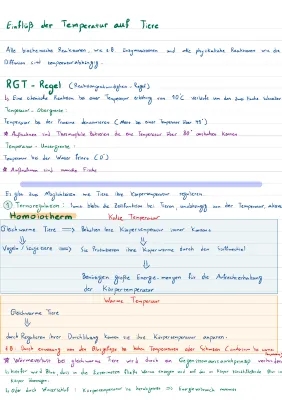 Einfluß der Temperatur auf Tiere
Alle biochemische Reaktionen, wie z.B. Enzymreaktionen und alle physikalische Reaktionen wie die
Diffusion sind temperaturabhängig.
RGT - Regel (Reaktionsgeschwindigkeits-Regel)
↳ Eine chemische Reaktion bei einer Temperatur erhöhung von 10°C verläuft um das zwei fache
Temperatur - Obergrenze:
Temperatur bei der Proteine denaturieren (Meist bei einer Temperatur über 45°)
* Aufnahmen sind Thermophile Bakterien die eine Temperatur über 80° aushalten können
Temperatur - Untergrenze:
Temperatur bei der Wasser friere (0°)
* Aufnahmen sind manche Fische
Es gibt zwei Möglichkeiten wie Tiere ihre Körpertemperatur regulieren.
① Termoregulation: kann bleibt die Zellfunktion bei Tieren, unabhängig von der Temperatur,
Homoiotherm Kalte Temperatur
Gleichwarme Tiere ⟹ Behalten ihre Körpertemperatur immer Konstant
⇓
Vögel / Säugetiere ⟹ Sie Produzieren ihre Körperwärme durch den Stoffwechsel
⇓
Benötigen große Energie-mengen für die Aufrechterhaltung
der Körpertemperatur
Warme Temperatur
Gleichwarme Tiere
⇓
durch Regulieren ihrer Durchblutung können sie ihre Körpertemperatur anpassen.
z.B: Durch erweiterung von den Blutgefäße bei hohen Temperaturen oder Schwitzen
* Wärmeverlust bei gleichwarme Tiere wird durch ein Gegenstromaustauschprinzip
↳ hierfür wird Blut, dass in die Extremitäten fließt Wärme entzogen und auf das in Körper
Körper übertragen.
↳ Oder durch Winterschlaf: Körpertemperatur ist herabgesetzt ⟹ Energieverbrauch